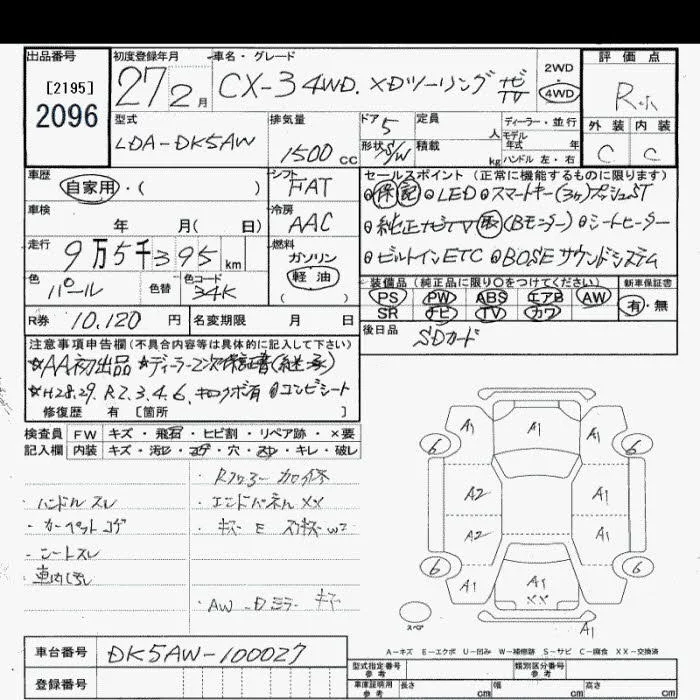 出品番号 初度登録年月 車名・グレード 評価点
[2195]
2096
27 2月 CX-3 4WD. XDツーリング ナビ TV
2WD
4WD
型式 排気量 ドア 定員 ディーラー・並行
LDA-DK5AW 1500 CC 5 人 モデル年式 年
形状 S/W 積載 kg ハンドル 左・右
外装 内装
C C
車歴 シフト セールスポイント(正常に機能するものに限ります)
自家用・( ) FAT 保記 LED スマートキー(3ヶ)プッシュST
車検 冷房 純正ナビTV 取 (Bモニター) シートヒーター
年 月( 日) AAC ビルトインETC BOSEサウンドシステム
走行 燃料
9万5千395 km ガソリン
軽油
( )
色 色替 色コード
パール 34K
装備品(純正品に限り〇をつけてください) 新車保証書
PS PW ABS エアB AW 有・無
SR ナビ TV カワ
R券 10,120円 名変期限 月 日
後日品 SDカード
注意事項申告欄(不具合内容等は具体的に記入して下さい)
☆AA初出品 ☆ディーラー2次保証書(継承)
☆H28.29. R2.3.4.6. キロクボ有 コンビシート
修復歴 有 [箇所 ]
検査員 FW キズ・飛石・ヒビ割・リペア跡・×要
記入欄 内装 キズ・汚レ・コゲ・穴・スレ・キレ・破レ
・ハンドル スレ
・エンドパネル XX
・カーペット コゲ
・シートスレ
・AW-Dミラー キズ
A1 A1 A1
6 6
A2 A1
A2 A1
6 6
A1 A1 A1
XX
スペア
A1
A-キズ E-エクボ U-凹み W-補修跡 S-サビ C-腐食 XX-交換済
車台番号 DK5AW-100027
登録番号
型式指定番号 参考 類別区分番号 参考
車庫証明用 参考 長さ cm 幅 cm 高さ cm